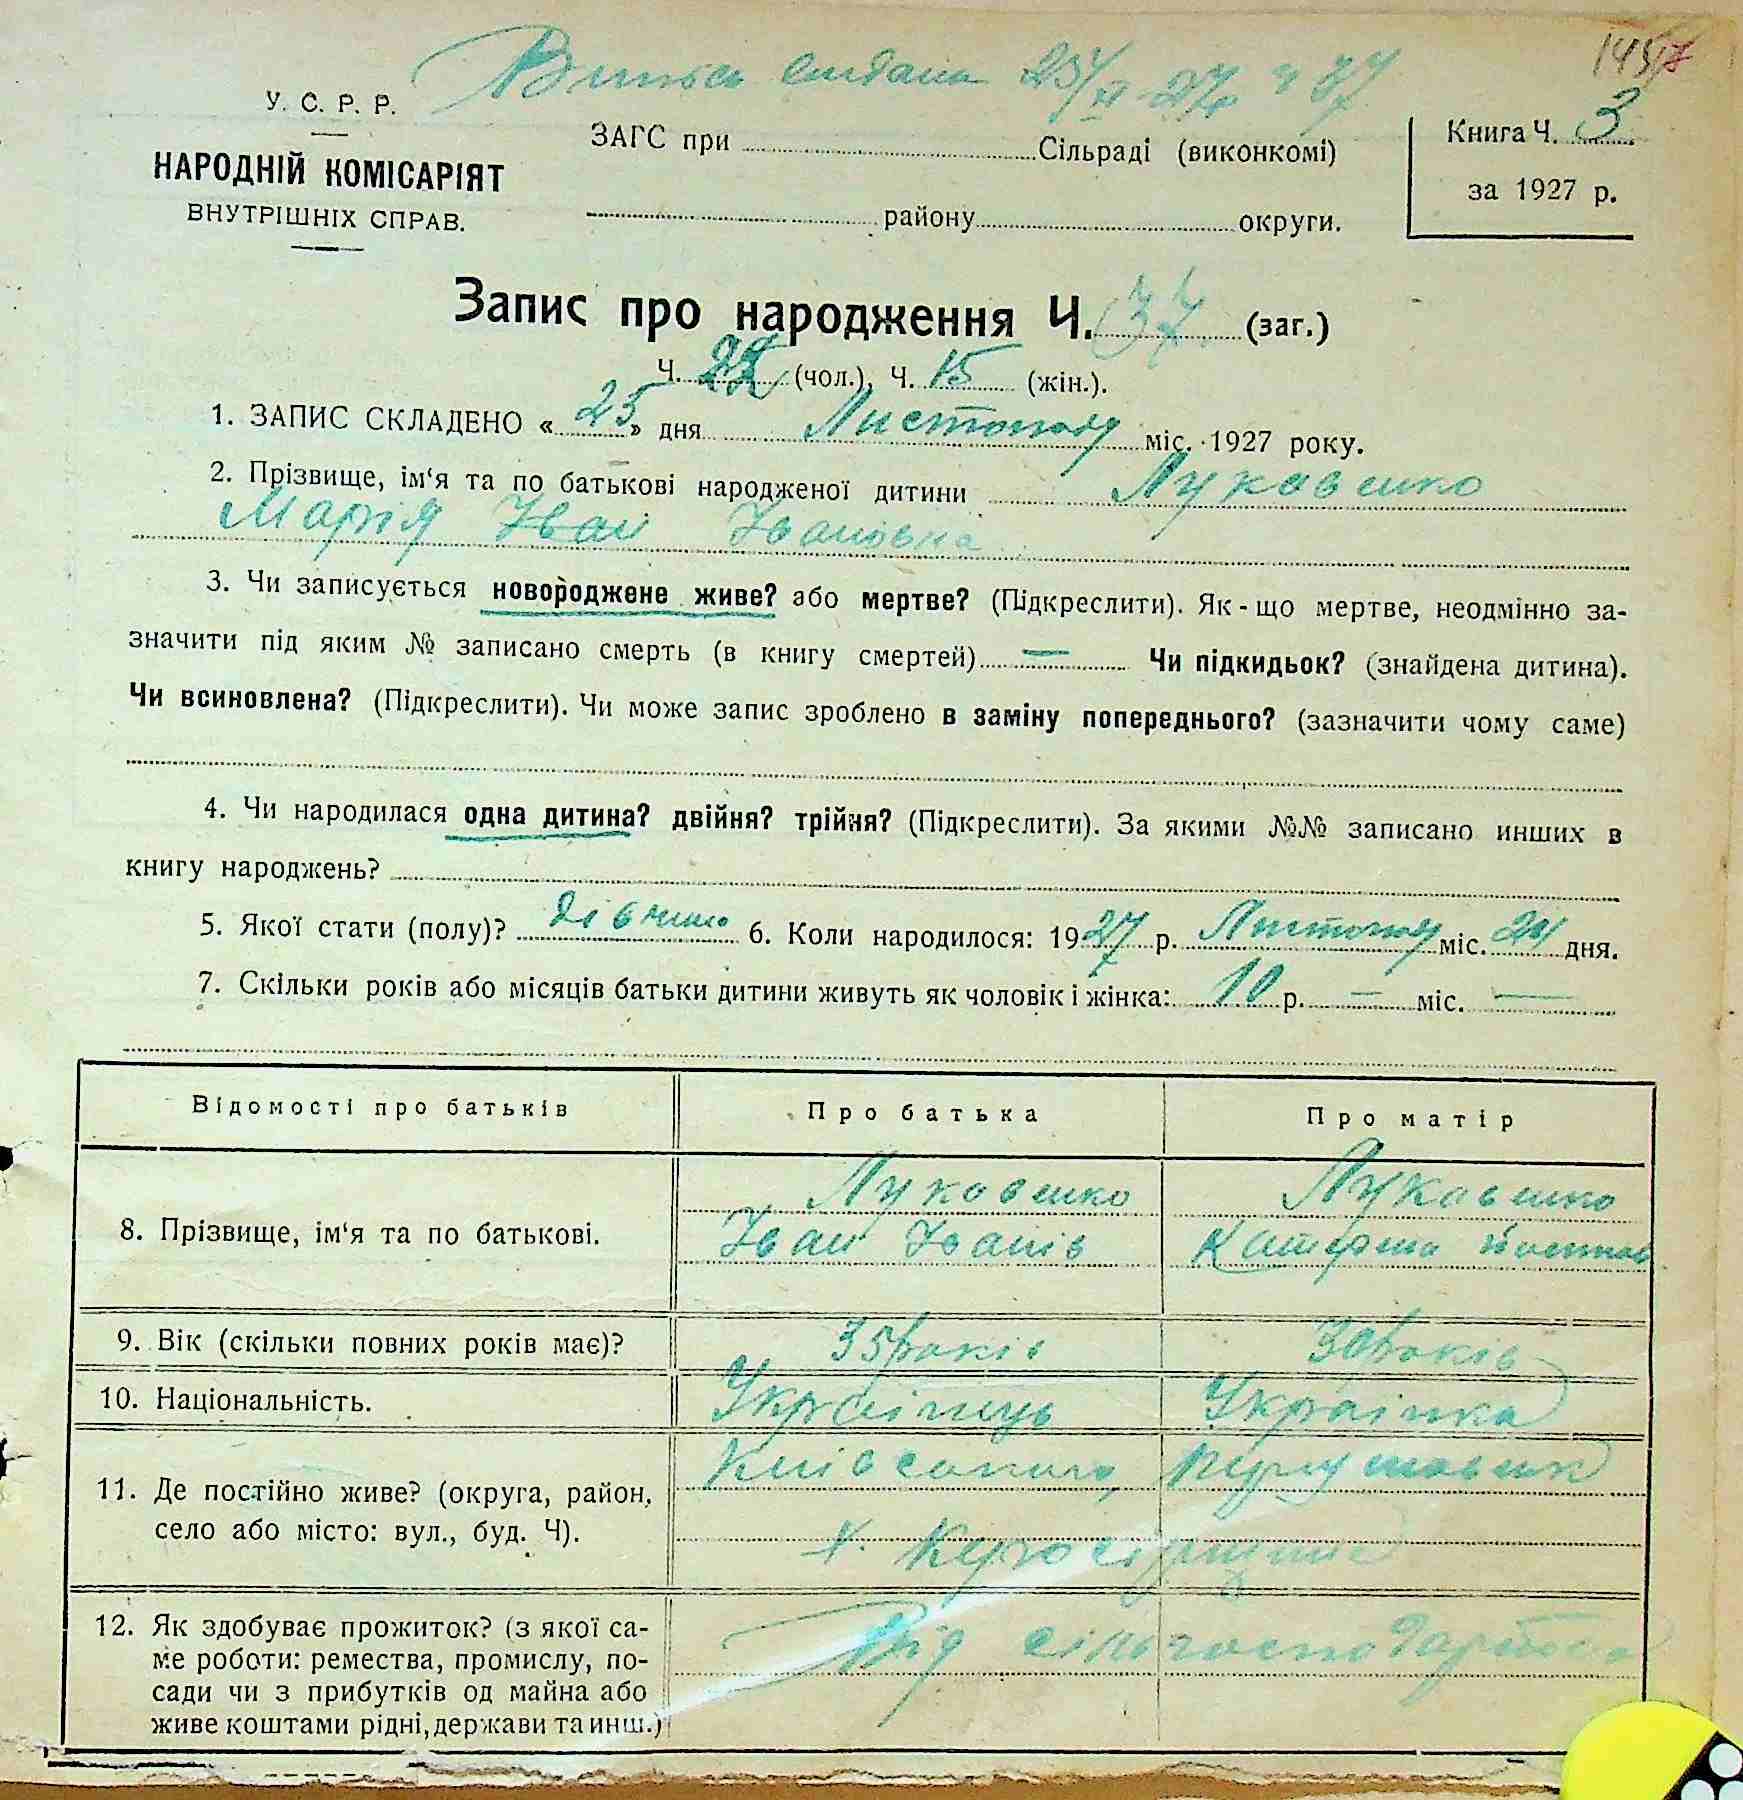 У. С. Р. Р.
НАРОДНІЙ КОМІСАРІЯТ
ВНУТРІШНІХ СПРАВ.
ЗАГС при Сільраді (виконкомі)
району округи.
Книга Ч. 3
за 1927 р.
Запис про народження Ч. 37 (заг.)
Ч. 22 (чол.), Ч. 15 (жін.).
1. ЗАПИС СКЛАДЕНО « 25 » дня Листопаду міс. 1927 року.
2. Прізвище, ім‘я та по батькові народженої дитини Лукавенко
Марія Іван Івановна
3. Чи записується новороджене живе? або мертве? (Підкреслити). Як-що мертве, неодмінно за-
значити під яким № записано смерть (в книгу смертей) — Чи підкидьок? (знайдена дитина).
Чи всиновлена? (Підкреслити). Чи може запис зроблено в заміну попереднього? (зазначити чому саме)
4. Чи народилася одна дитина? двійня? трійня? (Підкреслити). За якими №№ записано инших в
книгу народжень?
5. Якої стати (полу)? дівчина 6. Коли народилося: 1927 р. Листопаду міс. 24 дня.
7. Скільки років або місяців батьки дитини живуть як чоловік і жінка: 10 р. — міс. —
Відомості про батьків Про батька Про матір
8. Прізвище, ім‘я та по батькові.
Лукавенко Лукавенко
Іван Іванів Катерина
9. Вік (скільки повних років має)? 35 років 30 років
10. Національність. Українець Українка
11. Де постійно живе? (округа, район,
село або місто: вул., буд. Ч).
12. Як здобуває прожиток? (з якої са-
ме роботи: ремества, промислу, по-
сади чи з прибутків од майна або
живе коштами рідні, держави та инш.)
Від сільгосподарства